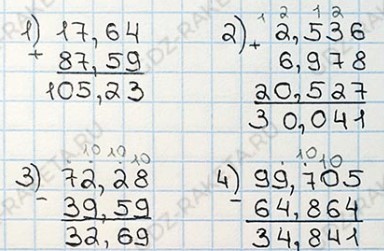 1) 17,64
+ 87,59
105,23
1 2 1 2
2) + 2,536
6,978
20,527
30,041
10 10 10
3) - 72,28
39,59
32,69
10 10
4) - 99,705
64,864
34,841